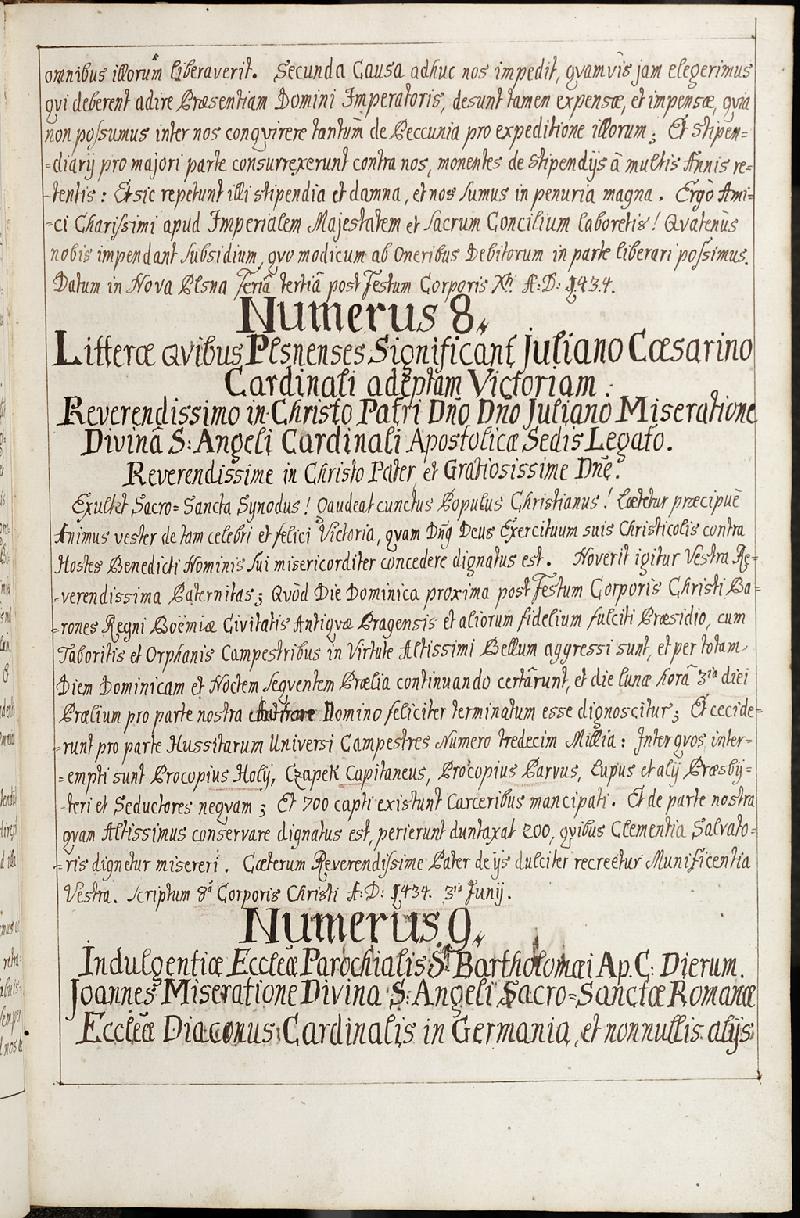 omnibus illorum liberaverit. Secunda Causa adhuc nos impedit, qvamvis jam elegerimus
qvi deberent adire Præsentiam Domini Imperatoris, desunt tamen expensæ, et impensæ, qvia
non possumus inter nos conqvirere tantum de Peccunia pro expeditione illorum; Et stipen=
=diarij pro majori parte consurrexerunt contra nos, monentes de stipendijs â multis Annis re=
=tentis: Et sic repetunt illi stipendia et damna, et nos sumus in penuria magna. Ergô Ami=
=ci Charissimi apud Imperialem Majestatem et Sacrum Concilium laboretis! Qvatenus
nobis impendant subsidium, qvo modicum ab Oneribus Debitorum in parte liberari possimus.
Datum in Nova Plsna Feriâ tertiâ post Festum Corporis Xti A: D: 1434.
Numerus 8.
Litteræ qvibus Plsnenses Significant Juliano Cæsarino
Cardinali adeptam Victoriam.
Reverendissimo in Christo Patri Dño Dno Juliano Miseratione
Divinâ S: Angeli Cardinali Apostolicæ Sedis Legato.
Reverendissime in Christo Pater et Gratiosissime Dnē.
Exultet Sacro=Sancta Synodus! Gaudeat cunctus Populus Christianus! Lætetur præcipuè
Animus vester de tam celebri et felici Victoria, qvam Dng Deus Exercituum suis Christicolis contra
Hostes Benedicti Nominis sui misericorditer concedere dignatus est. Noverit igitur Vestra Re=
=verendissima Paternitas; Qvòd Die Dominica proxima post Festum Corporis Christi Ba=
=rones Regni Boëmiæ Civitatis Antiqvæ Pragensis et aliorum fidelium fulciti Præsidio, cum
Taboritis et Orphanis Campestribus in Virtute Altissimi Bellum aggressi sunt, et per totam
Diem Dominicam et Noctem seqventem Prælia continuando certârunt, et die lunæ horâ 3tia diei
Prælium pro parte nostra Domino feliciter terminatum esse dignoscitur; Et cecide=
=runt pro parte Hussitarum Universi Campestres Numero tredecim Millia: Inter qvos, inter=
=empti sunt Procopius Holy, Czapek Capitaneus, Procopius Parvus, Lupus et alij Præsby=
=teri et Seductores neqvam; Et 700 capti existunt Carceribus mancipati. Et de parte nostra
qvam Altissimus conservare dignatus est, perierunt duntaxat 200, qvibus Clementia Salvato=
=ris dignetur misereri. Cæterum Reverendissime Pater de ijs dulciter recreetur Munificentia
Vestra. Scriptum 8a Corporis Christi A: D: 1434. 3ia Junij.
Numerus 9.
Indulgentiæ Eccleæ Parochialis Sti Bartholomæi Ap. C: Dierum.
Joannes Miseratione Divina S: Angeli Sacro=Sanctæ Romanæ
Eccleæ Diaconus Cardinalis in Germania, et nonnullis alijs